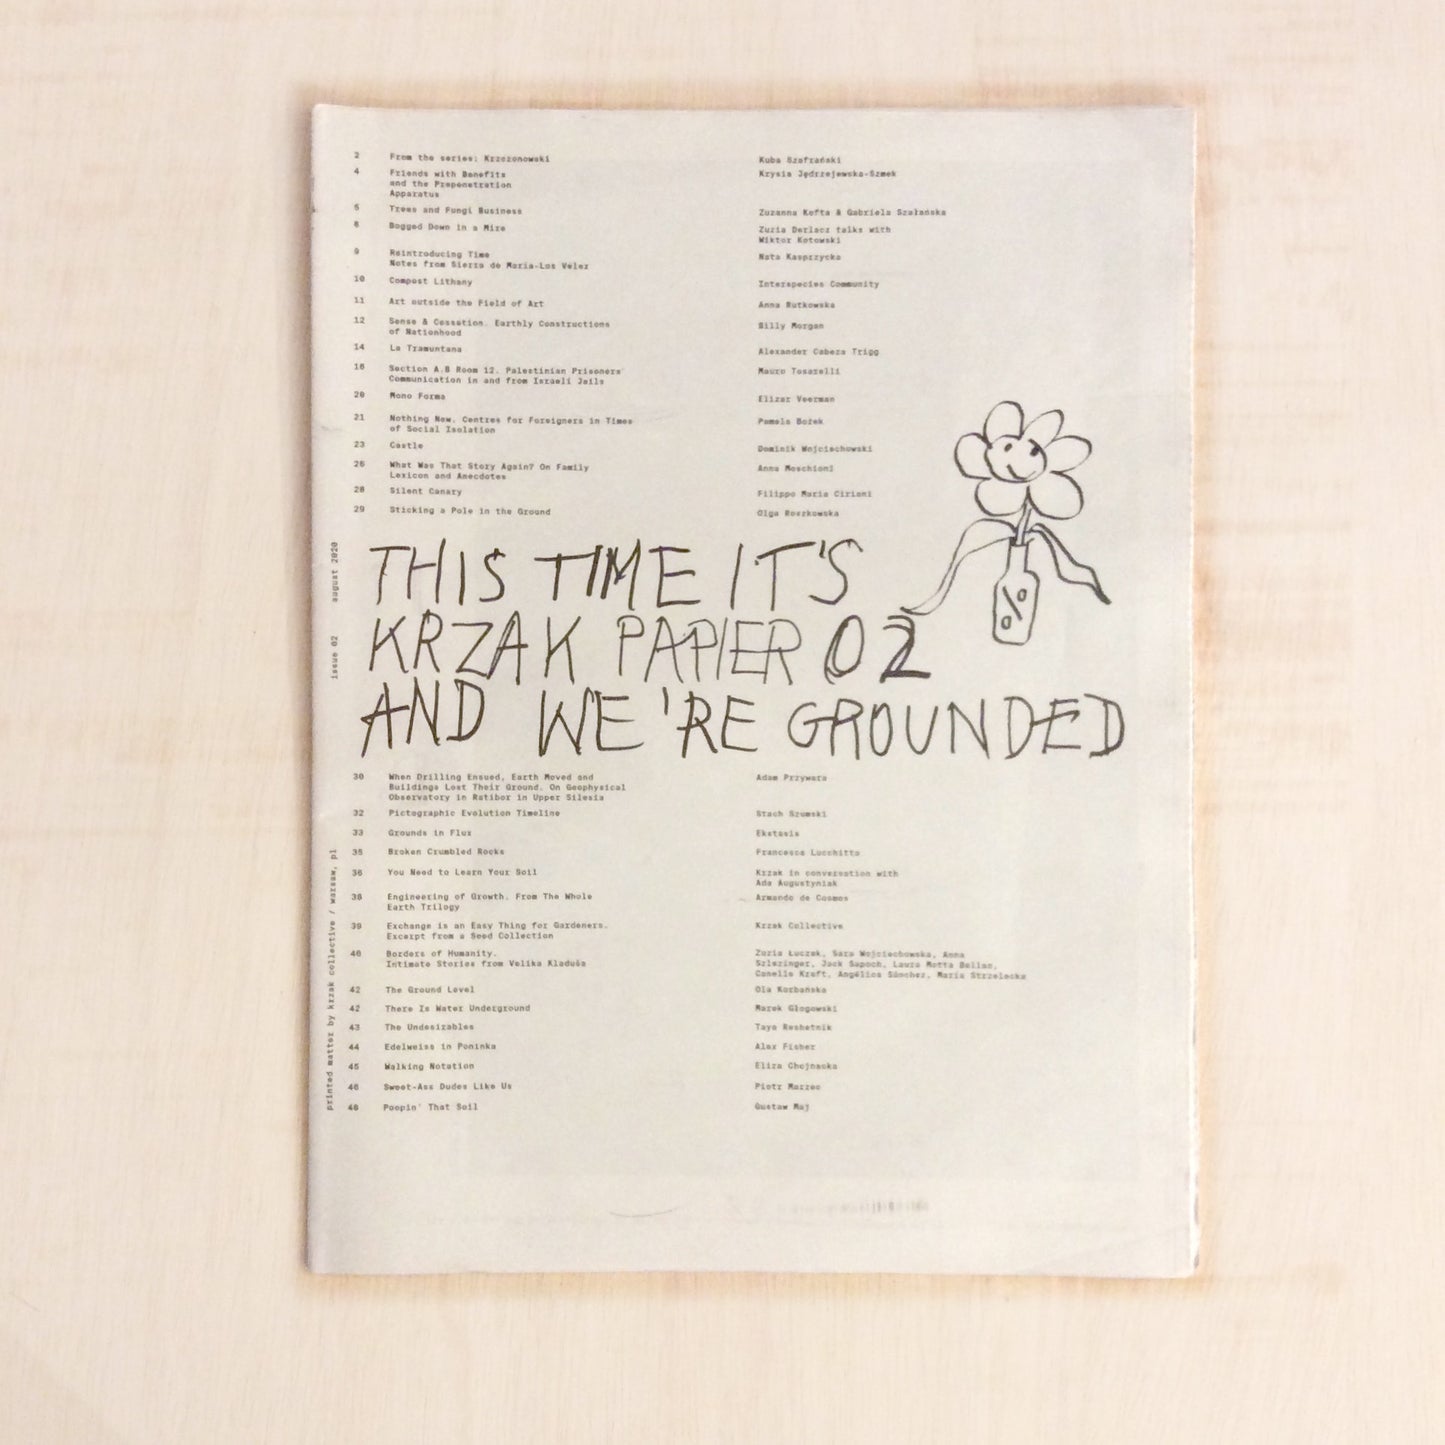 2 From the series: Krzczonowski Kuba Szafrański
4 Friends with Benefits Krysia Jędrzejewska-Szmek
and the Prepenetration
Apparatus
5 Trees and Fungi Business Zuzanna Kofta & Gabriela Szałańska
8 Bogged Down in a Mire Zuzia Derlacz talks with
Wiktor Kotowski
9 Reintroducing Time Nata Kasprzycka
Notes from Sierra de María-Los Vélez
10 Compost Lithany Interspecies Community
11 Art outside the Field of Art Anna Rutkowska
12 Sense & Cessation. Earthly Constructions Billy Morgan
of Nationhood
14 La Tramuntana Alexander Cabeza Trigg
16 Section A.B Room 12. Palestinian Prisoners' Mauro Tosarelli
Communication in and from Israeli Jails
20 Mono Forma Elizar Veerman
21 Nothing New. Centres for Foreigners in Times Pamela Bożek
of Social Isolation
23 Castle Dominik Wojciechowski
26 What Was That Story Again? On Family Anna Moschioni
Lexicon and Anecdotes
28 Silent Canary Filippo Maria Ciriani
29 Sticking a Pole in the Ground Olga Roszkowska
issue 02 august 2020
THIS TIME IT'S
KRZAK PAPIER 02
AND WE'RE GROUNDED
%
30 When Drilling Ensued, Earth Moved and Adam Przywara
Buildings Lost Their Ground. On Geophysical
Observatory in Ratibor in Upper Silesia
32 Pictographic Evolution Timeline Stach Szumski
33 Grounds in Flux Ekstasis
35 Broken Crumbled Rocks Francesca Lucchitta
36 You Need to Learn Your Soil Krzak in conversation with
Ada Augustyniak
38 Engineering of Growth. From The Whole Armando de Cosmos
Earth Trilogy
39 Exchange is an Easy Thing for Gardeners. Krzak Collective
Excerpt from a Seed Collection
40 Borders of Humanity. Zuzia Łuczak, Sara Wojciechowska, Anna
Intimate Stories from Velika Kladuša Szlszinger, Jack Sapoch, Laura Motta Bellan,
Canelle Kraft, Angélica Sánchez, Maria Strzelecka
42 The Ground Level Ola Korbańska
42 There Is Water Underground Marek Głogowski
43 The Undesirables Taya Reshetnik
44 Edelweiss in Poninka Alex Fisher
45 Walking Notation Eliza Chojnacka
46 Sweet-Ass Dudes Like Us Piotr Marzec
48 Poopin' That Soil Gustaw Maj
printed matter by krzak collective / warsaw, pl